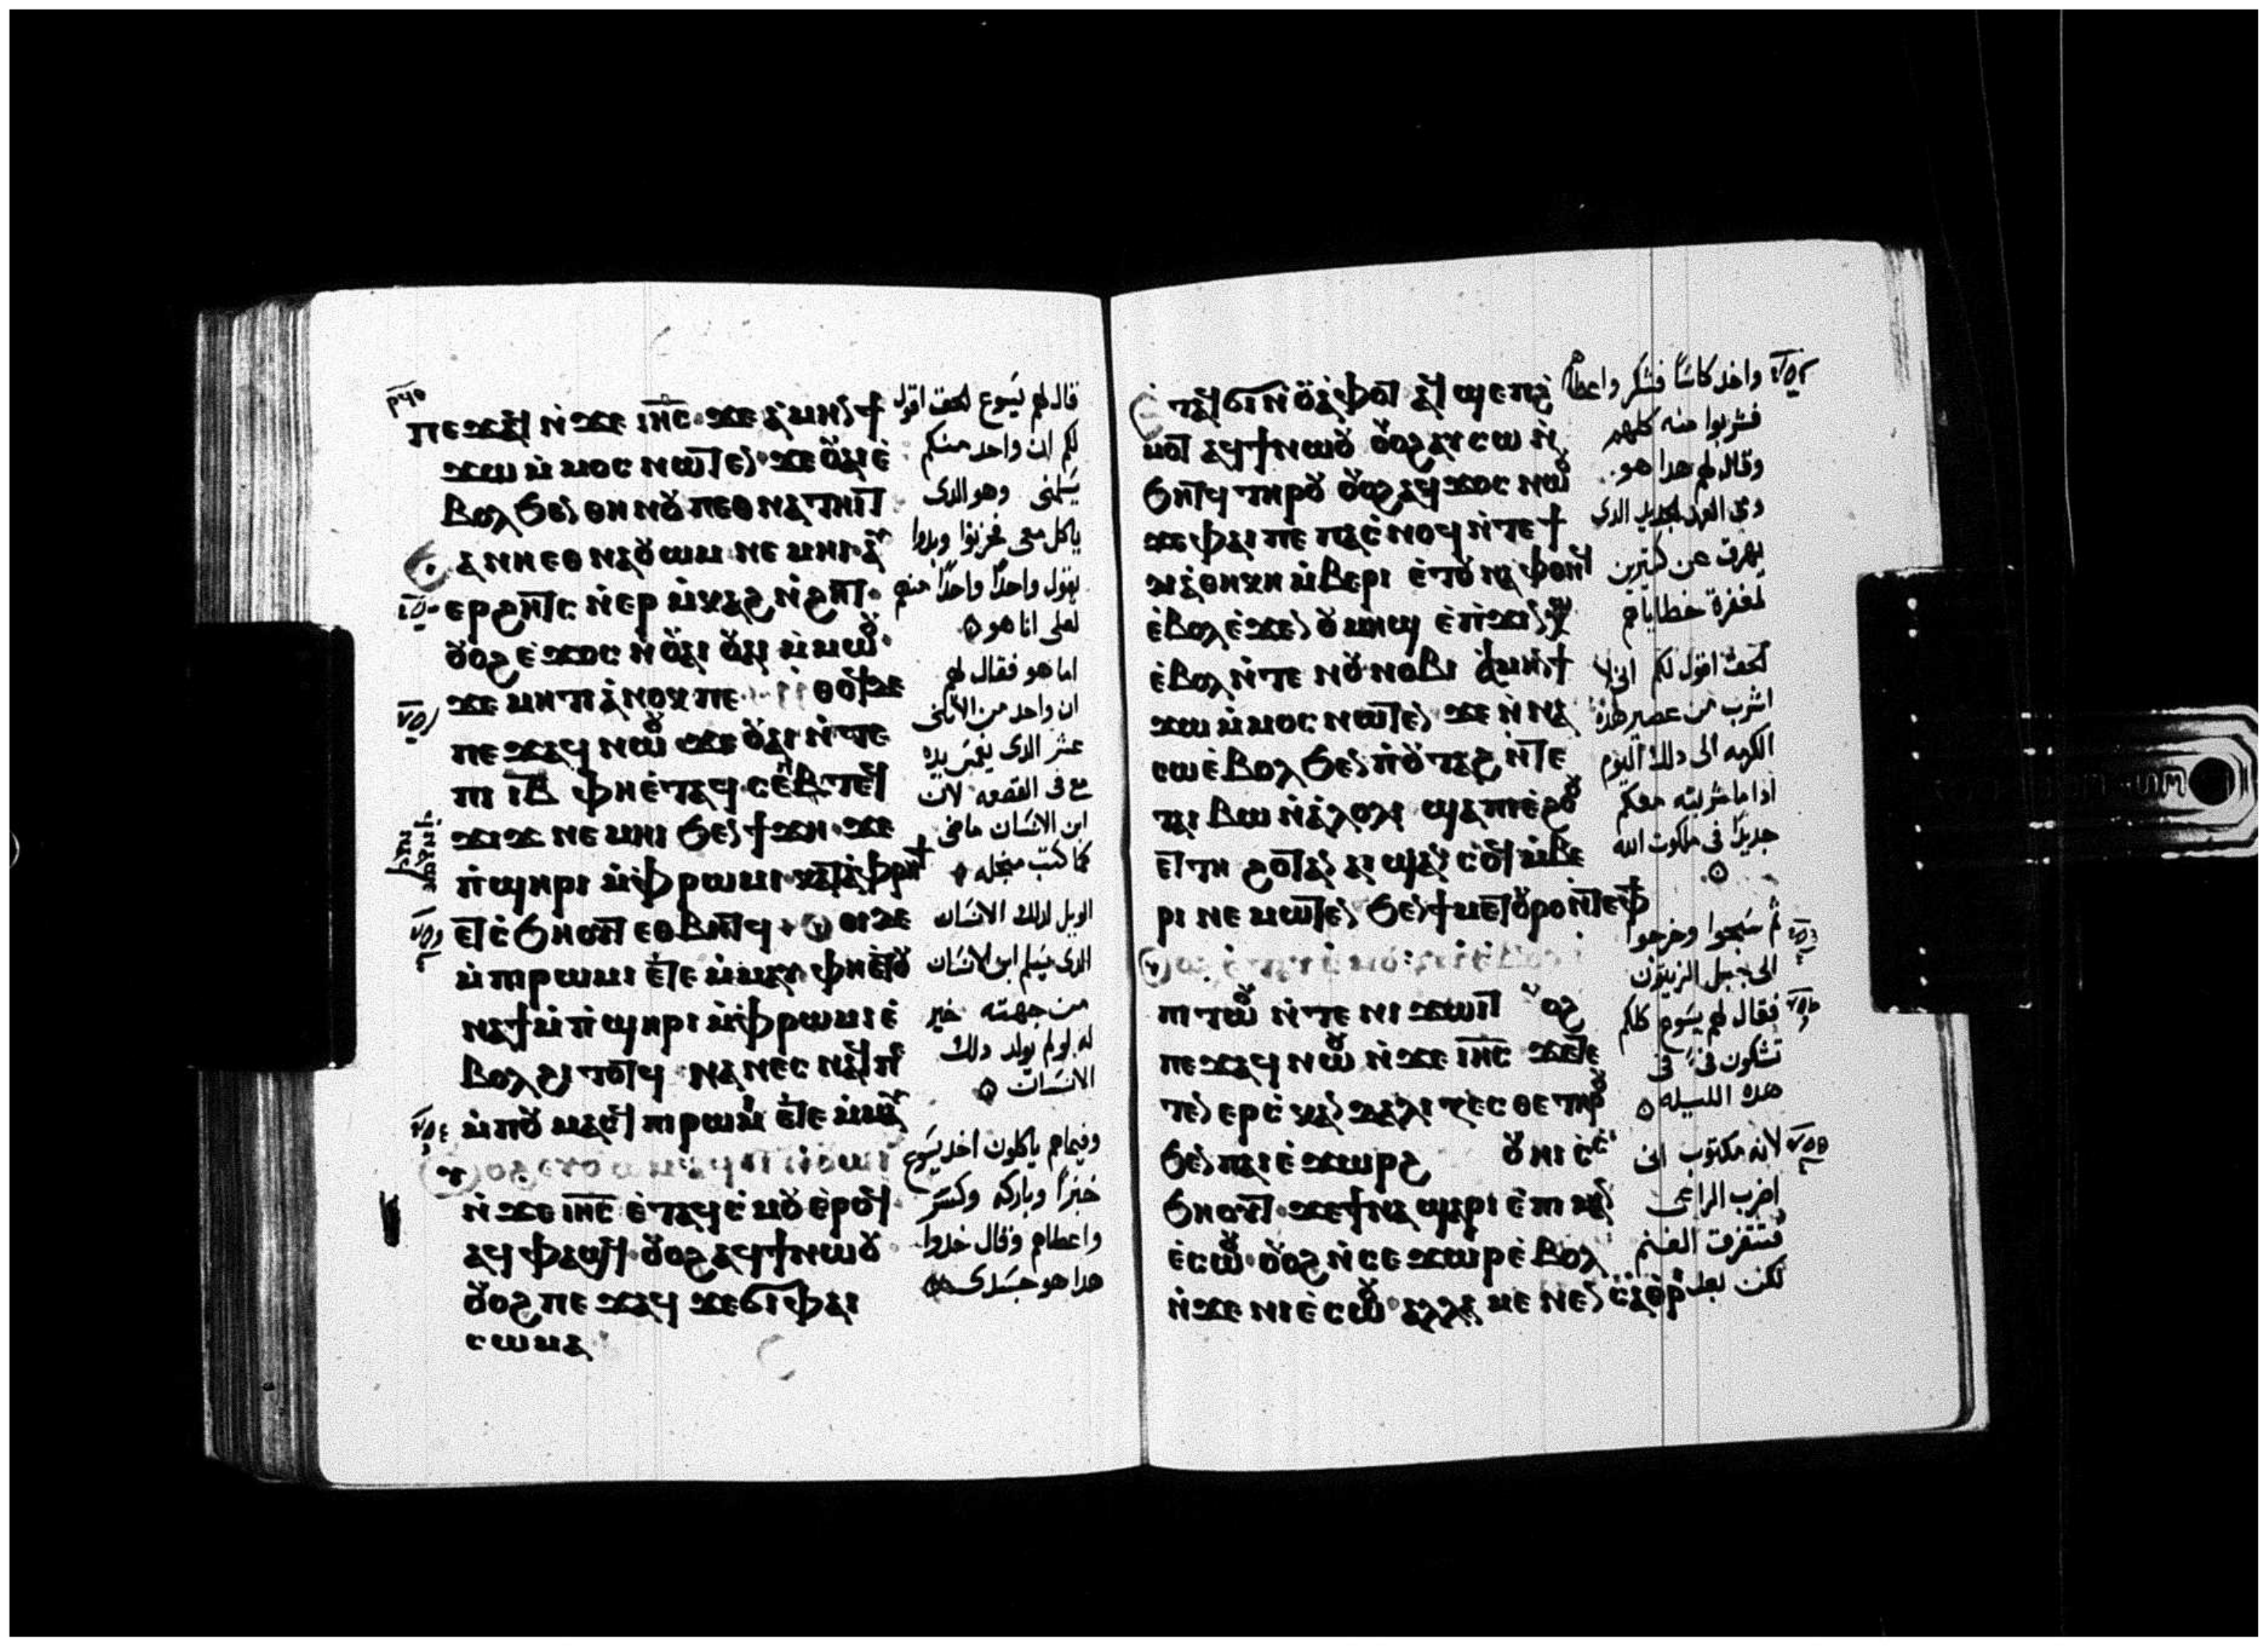 ⲡⲉϫⲁϥ ⲛ̇ϫⲉ ⲓⲏ̅ⲥ̅ ϫⲉ ⲁ̇ⲙⲏⲛ ϯ
ϫⲱ ⲙ̇ⲙⲟⲥ ⲛⲱⲧⲉⲛ ϫⲉ ⲟⲩⲁⲓ ⲉ̇
ⲃⲟⲗ ϧⲉⲛ ⲑⲏⲛⲟⲩ ⲡⲉⲑⲛⲁⲧⲏⲓⲧ
ⲫⲏⲉⲑⲛⲁⲟⲩⲱⲙ ⲛⲉⲙⲏⲓ ⲁⲩ
ⲉⲣϩⲏⲧⲥ ⲛ̇ⲉⲣ ⲙ̇ⲕⲁϩ ⲛ̇ϩⲏⲧ
ⲟⲩⲟϩ ⲉ̇ϫⲟⲥ ⲛ̇ⲟⲩⲁⲓ ⲟⲩⲁⲓ ⲙ̇ⲙⲱⲟⲩ
ϫⲉ ⲙⲏⲧⲓ ⲁ̇ⲛⲟⲕ ⲡⲉ ⲛ̇ⲑⲟϥ ⲇⲉ
ⲡⲉϫⲁϥ ⲛⲱⲟⲩ ϫⲉ ⲟⲩⲁⲓ ⲛ̇ⲧⲉ
ⲡⲓ ⲓ̅ⲃ̅ ⲫⲏⲉ̇ⲧⲁϥ ⲥⲉⲡ ⲧⲉϥ
ϫⲓϫ ⲛⲉⲙⲏⲓ ϧⲉⲛ ϯϫⲏ ϫⲉ
ⲡ̇ϣⲏⲣⲓ ⲙ̇ⲫⲣⲱⲙⲓ ⲕⲁⲧⲁ ⲫⲣⲏϯ
ⲉⲧⲥ̇ϧⲏⲟⲩⲧ ⲉⲑⲃⲏⲧϥ ⲟⲩⲟⲓ ⲇⲉ
ⲙ̇ⲡⲓⲣⲱⲙⲓ ⲉ̇ⲧⲉ ⲙ̇ⲙⲁⲩ ⲫⲏⲉ̇ⲧⲟⲩ
ⲛⲁϯ ⲙ̇ⲡ̇ϣⲏⲣⲓ ⲙ̇ⲫⲣⲱⲙⲓ ⲉ̇
ⲃⲟⲗ ϩⲓⲧⲟⲧϥ ⲛⲁⲛⲉⲥ ⲛⲁϥ ⲡⲉ
ⲙ̇ⲡⲟⲩ ⲙⲁⲥϥ ⲡⲓⲣⲱⲙⲓ ⲉ̇ⲧⲉ ⲙ̇ⲙⲁⲩ
ⲛ̇ϫⲉ ⲓⲏ̅ⲥ̅ ⲉ̇ⲧⲁϥⲥ̇ⲙⲟⲩ ⲉ̇ⲣⲟϥ
ⲁϥⲫⲁϣϥ ⲟⲩⲟϩ ⲁϥϯ ⲛⲱⲟⲩ
ⲟⲩⲟϩ ⲡⲉϫⲁϥ ϫⲉ ϭⲓ ⲫⲁⲓ
ⲥⲱⲙⲁ
قال لهم يسوع الحق اقول
لكم ان واحد منكم
يسلمنى وهو الذى
ياكل معى فحزنوا وبدوا
يقول واحدًا واحدًا منهم
لعلى انا هو
اما هو فقال لهم
ان واحد من الاثنى
عشر الذى يغمس يده
مع فى القصعه لان
ابن الانسان ماض
كما كتب من اجله
الويل لذلك الانسان
الذى يسلم ابن الانسان
من جهته خير
له لو لم يولد ذلك
الانسان
وفيما هم ياكلون اخذ يسوع
خبزًا وباركه وكسر
واعطاهم وقال خذوا
هذا هو جسدى
ⲉ̇ⲧⲁϥϭⲓ ⲛ̇ⲟⲩⲁ̇ⲫⲟⲧ ⲁϥϣⲉⲡϩ̇
ⲙⲟⲧ ⲁϥϯ ⲛⲱⲟⲩ ⲟⲩⲟϩ ⲁⲩⲥⲱ ⲛ̇
ϧⲏⲧϥ ⲧⲏⲣⲟⲩ ⲟⲩⲟϩ ⲁϥϫⲟⲥ ⲛⲱⲟⲩ
ϫⲉ ⲫⲁⲓ ⲡⲉ ⲡⲁⲥ̇ⲛⲟϥ ⲛ̇ⲧⲉ ϯ
ⲇⲓⲁ̇ⲑⲏⲕⲏ ⲙ̇ⲃⲉⲣⲓ ⲉ̇ⲧⲟⲩⲛⲁⲫⲟⲛϥ
ⲉ̇ⲃⲟⲗ ⲉ̇ϫⲉⲛ ⲟⲩⲙⲏϣ ⲉ̇ⲡ̇ϫⲓⲛⲭⲱ
ⲉ̇ⲃⲟⲗ ⲛ̇ⲧⲉ ⲛⲟⲩⲛⲟⲃⲓ ⲁ̇ⲙⲏⲛ ϯ
ϫⲱ ⲙ̇ⲙⲟⲥ ⲛⲱⲧⲉⲛ ϫⲉ ⲛ̇ⲛⲁ
ⲥⲱ ⲉ̇ⲃⲟⲗ ϧⲉⲛ ⲡ̇ⲟⲩⲧⲁϩ ⲛ̇ⲧⲉ
ⲧⲁⲓ ⲃⲱ ⲛ̇ⲁ̇ⲗⲟⲗⲓ ϣⲁ ⲡⲓⲉ̇ϩⲟⲟⲩ
ⲉⲧⲧⲏ ϩⲟⲧⲁⲛ ⲁⲓϣⲁⲛ ⲥⲟϥ ⲙ̇ⲃⲉ
ⲣⲓ ⲛⲉⲙⲱⲧⲉⲛ ϧⲉⲛ ϯⲙⲉⲧⲟⲩⲣⲟ ⲛ̇ⲧⲉ ⲫϯ
ⲡⲓⲧⲱⲟⲩ ⲛ̇ⲧⲉ ⲛⲓϫⲱⲓⲧ ⲟⲩⲟϩ
ⲡⲉϫⲁϥ ⲛⲱⲟⲩ ⲛ̇ϫⲉ ⲓⲏ̅ⲥ̅ ϫⲉ ⲧⲉ
ⲧⲉⲛ ⲉⲣⲥ̇ⲕⲁⲛⲇⲁⲗⲓⲍⲉⲥⲑⲉ ⲧⲏⲣⲟⲩ
ϧⲉⲛ ⲡⲁⲓ ⲉ̇ϫⲱⲣϩ ⲟⲩⲏⲓ ⲥ̇
ⲥ̇ϧⲏⲟⲩⲧ ϫⲉ ϯⲛⲁϣⲁⲣⲓ ⲉ̇ⲡⲓⲙⲁⲛ
ⲉ̇ⲥⲱⲟⲩ ⲟⲩⲟϩ ⲛ̇ⲥⲉϫⲱⲣ ⲉ̇ⲃⲟⲗ
ⲛ̇ϫⲉ ⲛⲓⲉ̇ⲥⲱⲟⲩ ⲁⲗⲗⲁ ⲙⲉⲛⲉⲛⲥⲁ ⲑⲣ
واخذ كاسًا فشكر واعطاهم
فشربوا منه كلهم
وقال لهم هذا هو
دمى العهد الجديد الذى
يهرق عن كثيرين
لمغفرة خطاياهم
الحق اقول لكم انى لا
اشرب من عصير هذه
الكرمه الى ذلك اليوم
اذا ما شربته معكم
جديدًا فى ملكوت الله
ثم سبحوا وخرجوا
الى جبل الزيتون
فقال لهم يسوع كلكم
تشكون فى فى
هذه الليله
لانه مكتوب انى
اضرب الراعى
فتتفرق الغنم
لكن بعد